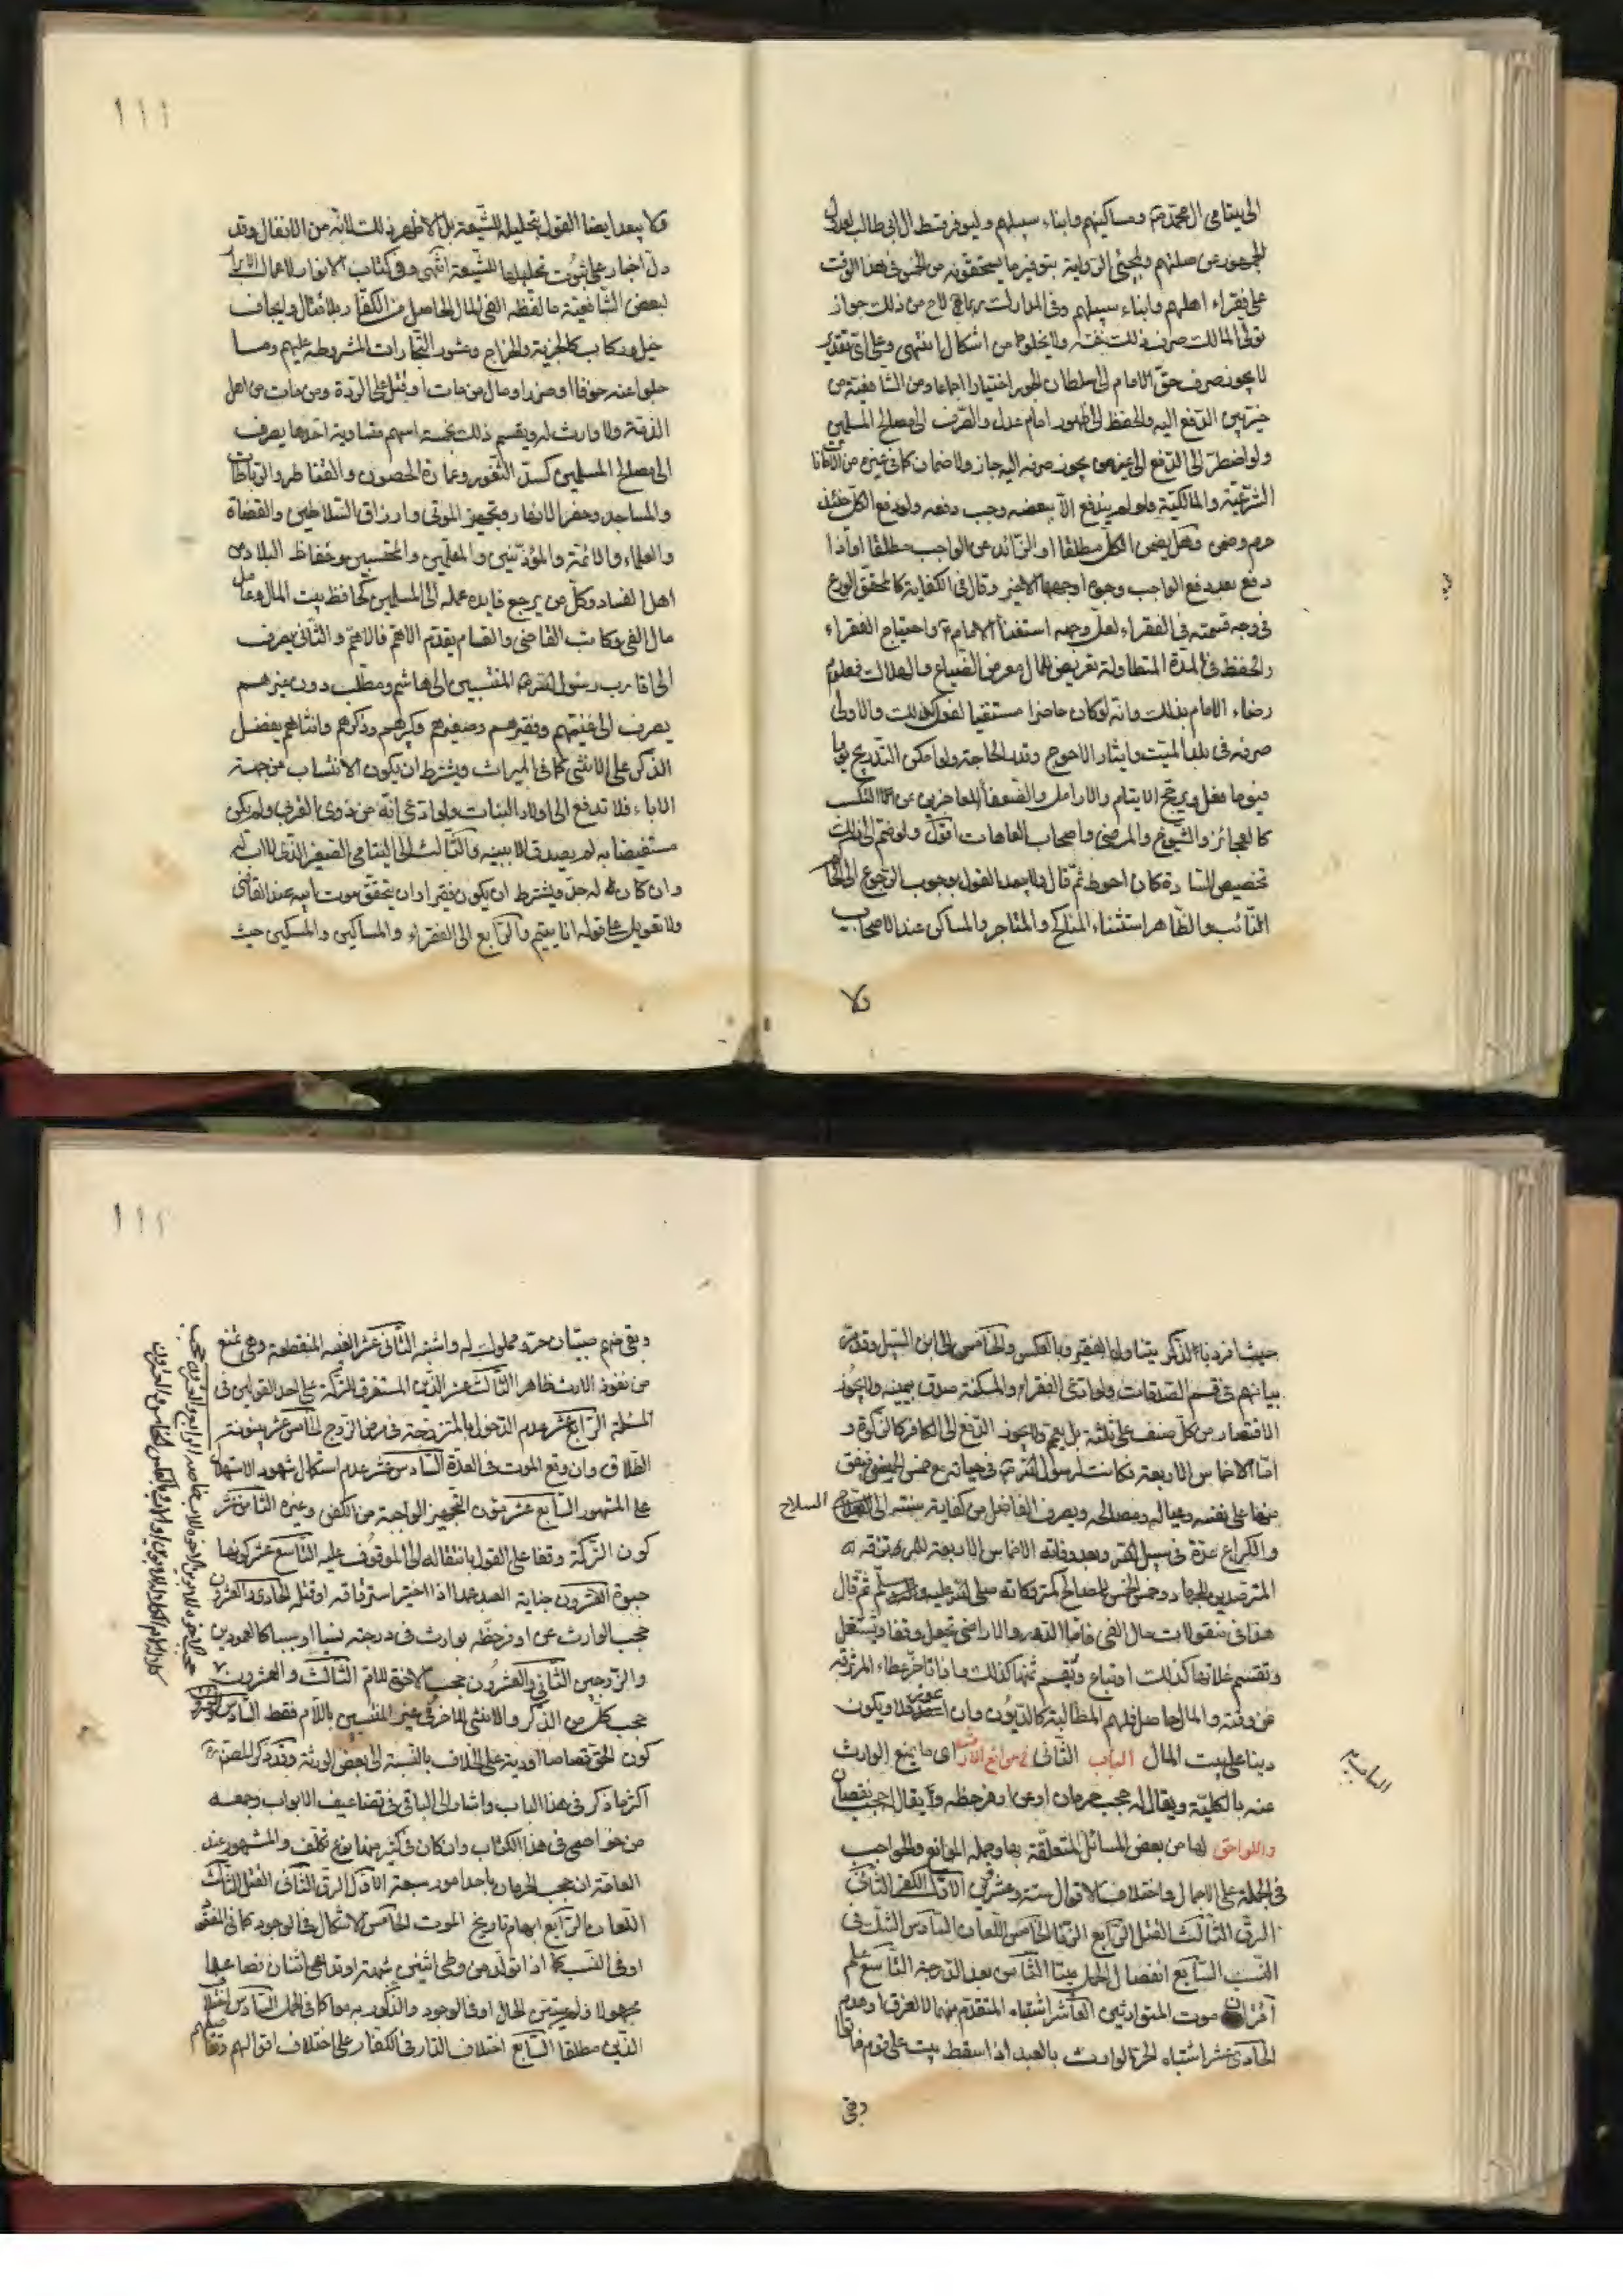 الى يتامى ال محمد ص ومساكينهم وابناء سبيلهم وليوفر قسط ال ابى طالب لعدول
الجمهور عن صلتهم ولمجئ الرواية بتوفير ما يستحقونه من الخمس فى هذا الوقت
على فقراء اهلهم وابناء سبيلهم وفى المدارك لاح من ذلك جواز
تولى المالك صرف ذلك بنفسه ولا يخلوا من اشكال انتهى وعلى اى تقدير
لا يجوز صرف حق الامام الى سلطان الجور اختيارا اجماعا ومن الشافعية من
خير بين الدفع اليه والحفظ الى ظهور امام عدل والصرف الى مصالح المسلمين
ولو اضطر الى الدفع الى غير من يجوز صرفه اليه جاز ولا ضمان كما فى غيره من الامانات
الشرعية والمالكية ولو لم يندفع الا ببعضه وجب دفعه ولو دفع الكل حينئذ
حرم وضمن وهل يضمن الكل مطلقا او الزائد عن الواجب مطلقا او اذا
دفع بعد دفع الواجب وجوه اوجهها الاخير وقال فى الكفاية كالمحقق الورع
فى وجه قسمته فى الفقراء لعل وجهه استغناء الامام ع واحتياج الفقراء
والحفظ فى المدة المتطاولة تعريض للمال معرض الضياع والهلاك فمعلوم
رضاء الامام بذلك وانه لو كان حاضرا مستغنيا لفعل كذلك والاولى
صرفه فى بلد الميت وايثار الاحوج وقدر الحاجة ولو امكن التدريج يوما
فيوما فعل ويرجح الايتام والارامل والضعفاء العاجزين عن التكسب
كالعجائز والشيوخ والمرضى واصحاب العاهات اقول ولو ضم الى ذلك
تخصيص السادة كان احوط ثم قال ولا يبعد القول بوجوب الرجوع الى الحاكم
النائب والظاهر استثناء المناكح والمتاجر والمساكن عند الاصحاب
ولا
١١١
فلا يبعد ايضا القول بتحليله للشيعة بل الاظهر ذلك لانه من الانفال وقد
دل اخبار على ثبوت تحليلها للشيعة انتهى وفى كتاب الانوار لاعمال الابرار
لبعض الشافعية ما لفظه الفئ المال الحاصل من الكفار بلا قتال وايجاف
خيل وركاب كالجزية والخراج وعشور التجارات المشروطة عليهم وما
جلوا عنه خوفا او ضرا ومال من مات او قتل على الردة ومن مات من اهل
الذمة ولا وارث له ويقسم ذلك بخمسة اسهم متساوية احدها يصرف
الى مصالح المسلمين كسد الثغور وعمارة الحصون والقناطر والرباطات
والمساجد وحفر الانهار وتجهيز الموتى وارزاق السلاطين والقضاة
والعلماء والائمة والمؤذنين والمعلمين والمحتسبين وحفاظ البلاد من
اهل الفساد وكل من يرجع فايدة عمله الى المسلمين كحافظ بيت المال وعامل
مال الفئ وكاتب القاضى والقسام يقدم الاهم فالاهم والثانى يصرف
الى اقارب رسول الله ص المنتسبين الى هاشم ومطلب دون غيرهم
يصرف الى غنيهم وفقيرهم وصغيرهم وكبيرهم وذكرهم وانثاهم يفضل
الذكر على الانثى كما فى الميراث ويشترط ان يكون الانتساب من جهة
الاباء فلا تدفع الى اولاد البنات ولو ادعى انه من ذوى القربى ولم يكن
مستفيضا به لم يصدق الا ببينة والثالث الى اليتامى الصغير الذى لا اب له
وان كان له جد ويشترط ان يكون فقيرا وان يتحقق موت ابيه عند القاضى
ولا تعويل على قوله انا يتيم والرابع الى الفقراء والمساكين والمسكين حيث
حيث افرد بالذكر يتناول الفقير وبالعكس والخامس الى ابن السبيل وقد مر
بيانهم فى قسم الصدقات ولو ادعى الفقراء والمسكنة صدق بيمينه ولا يجوز
الاقتصار من كل صنف على ثلثة بل يعم ولا يجوز الدفع الى الكافر كالزكوة و
اما الاخماس الاربعة فكانت لرسول الله ص فى حياته مع خمس الخمس فينفق
منها على نفسه وعياله ومصالحه ويصرف الفاضل من كفاية سنته الى
السلاح
والكراع عدة فى سبيل الله وبعد وفاته الاخماس الاربعة للمرتزقة
المترصدين للجهاد وخمس الخمس للمصالح كمرتزقاته صلى الله عليه وآله وسلم ثم قال
هذا فى منقولات مال الفئ فاما الدور والاراضى تجعل وقفا ويستغل
وتقسم غلاتها كذلك او تباع ويقسم ثمنها كذلك واذا تاخر عطاء المرتزقة
عن وقته والمال حاصل فلهم المطالبة كالديون وان فلا ويكون
دينا على بيت المال الباب الثانى فى موانع الارث اى ما يمنع الوارث
عنه بالكلية ويقال له حجب حرمان او عن اوفر حظه ويقال حجب نقصان
واللواحق لها من بعض المسائل المتعلقة بها وجملة الموانع والحواجب
فى الجملة على الاجمال واختلاف الاقوال ستة وعشرون الاول الكفر الثانى
الرق الثالث القتل الرابع الزنا الخامس اللعان السادس الشك فى
النسب السابع انفصال الحمل ميتا الثامن بعد الدرجة التاسع علم
اقتران موت المتوارثين العاشر اشتباه المتقدم منهما لا بالغرق او هدم
الحاديعشر اشتباه الحر الوارث بالعبد اذا سقط بيت على قوم فماتوا
وبقى
١١٢
وبقى منهم صبيان حر ومملوك له واشتبه الثانى عشر الغيبة المنقطعة وهى تمنع
من نفوذ الارث ظاهرا الثالث عشر الدين المستغرق للتركة على احد القولين فى
المسئلة الرابع عشر عدم الدخول بالمتزوجة فى مرض الزوج الخامس عشر بينونة
الطلاق وان وقع الموت فى العدة السادس عشر عدم استكمال شهود الاستهلال
على المشهور السابع عشر مؤن التجهيز الواجبة من الكفن وغيره الثامن عشر
كون التركة وقفا على القول بانتقاله الى الموقوف عليه التاسع عشر كونها
حبوة العشرون جناية العبد عمدا اذا اختير استرقاقه او قتله الحادى والعشرون
حجب الوارث عن اوفر حظه بوارث فى درجته نسبا او سببا كالعمودين
والزوجين الثانى والعشرون حجب الاخوة للام الثالث والعشرون
حجب كل من الذكر والانثى للاخر فى غير المنتسبين بالام فقط السادس والعشرون
كون الحق قصاصا او دية على الخلاف بالنسبة الى بعض الورثة وقد ذكر المصنف ره
اكثر ما ذكر فى هذا الباب واشار الى الباقى فى تضاعيف الابواب وجمعه
من خواصى فى هذا الكتاب وان كان فى كثير منها نوع تكلف والمشهور عند
العامة ان حجب الحرمان باحد امور سبعة الاول الرق الثانى القتل الثالث
اللعان الرابع ابهام تاريخ الموت الخامس الاشكال فى الوجود كما فى المفقود
او فى النسب كما اذا تولد من وطى اثنين بشبهة او تداعى اثنان فصاعدا
مجهولا ولم يتبين الحال او فى الوجود والذكورية معا كما فى الحمل السادس اختلاف
الدين مطلقا السابع اختلاف الدار فى الكفار على اختلاف اقوالهم